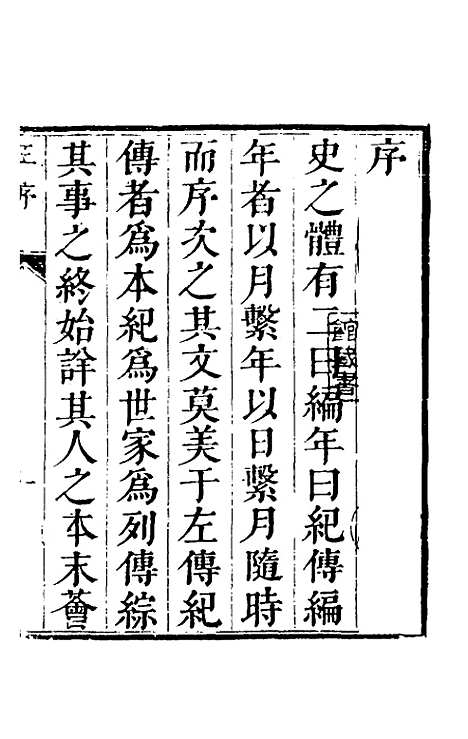 序
史之體有二曰編年曰紀傳編
年者以月繫年以日繫月隨時
而序次之其文莫美于左傳紀
傳者爲本紀爲世家爲列傳綜
其事之終始詳其人之本末薈
序
一
館藏書